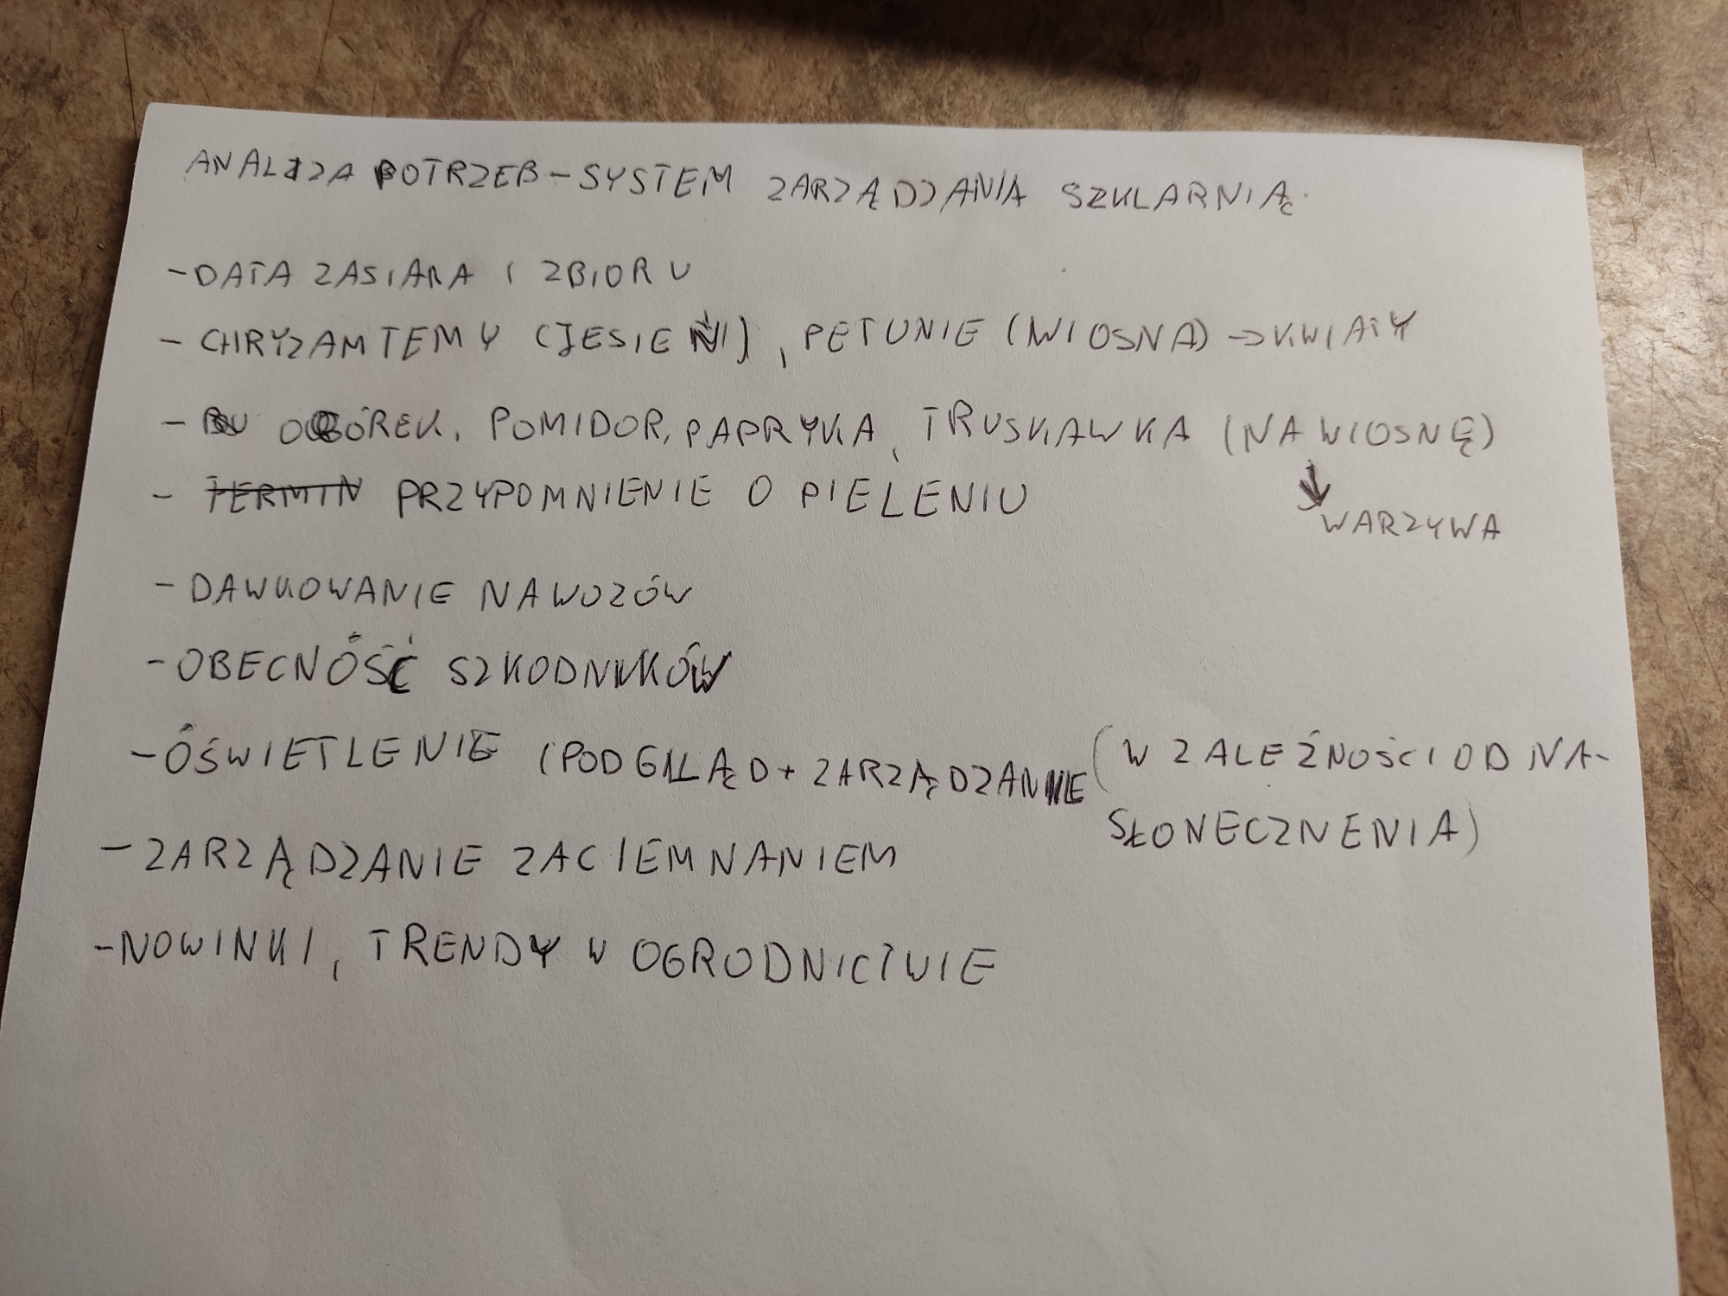 ANALIZA POTRZEB-SYSTEM ZARZĄDZANIA SZKLARNIĄ.
-DATA ZASIANA I ZBIORU
- CHRYZAMTEMY (JESIEŃ), PETUNIE (WIOSNA) -> KWIATY
- OGÓREK, POMIDOR, PAPRYKA, TRUSKAWKA (NA WIOSNĘ)
↓ WARZYWA
- TERMIN PRZYPOMNIENIE O PIELENIU
- DAWKOWANIE NAWOZÓW
- OBECNÓŚĆ SZKODNIKÓW
- ÓŚWIETLENIE (PODGLĄD + ZARZĄDZANIE (W ZALEŻNOŚCI OD NA-
SŁONECZNENIA)
- ZARZĄDZANIE ZACIEMNANIEM
- NOWINKI, TRENDY W OGRODNICTWIE